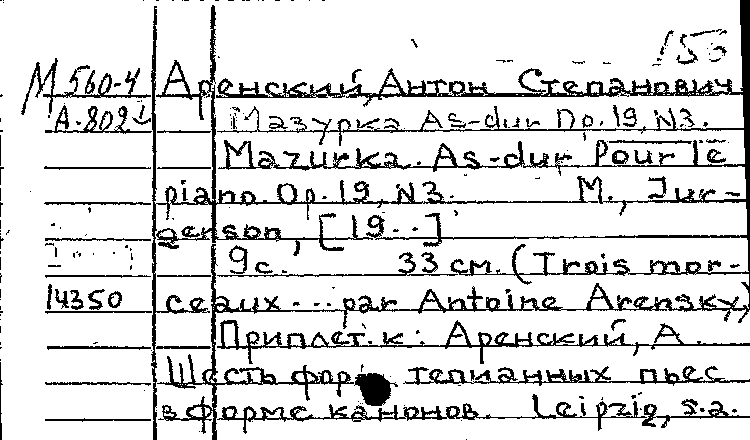 156
М 560-4 Аренский, Антон Степанович.
А-802 Мазурка As-dur Op.19, N3.
Mazurka. As-dur Pour le
piano. Op.19, N3. М., Jur-
genson, [19..]
9с. 33 см. (Trois mor-
14350 ceaux ... par Antoine Arensky)
Приплет. к: Аренский, А.
Шесть фортепианных пьес
в форме канонов. Leipzig, s.a.